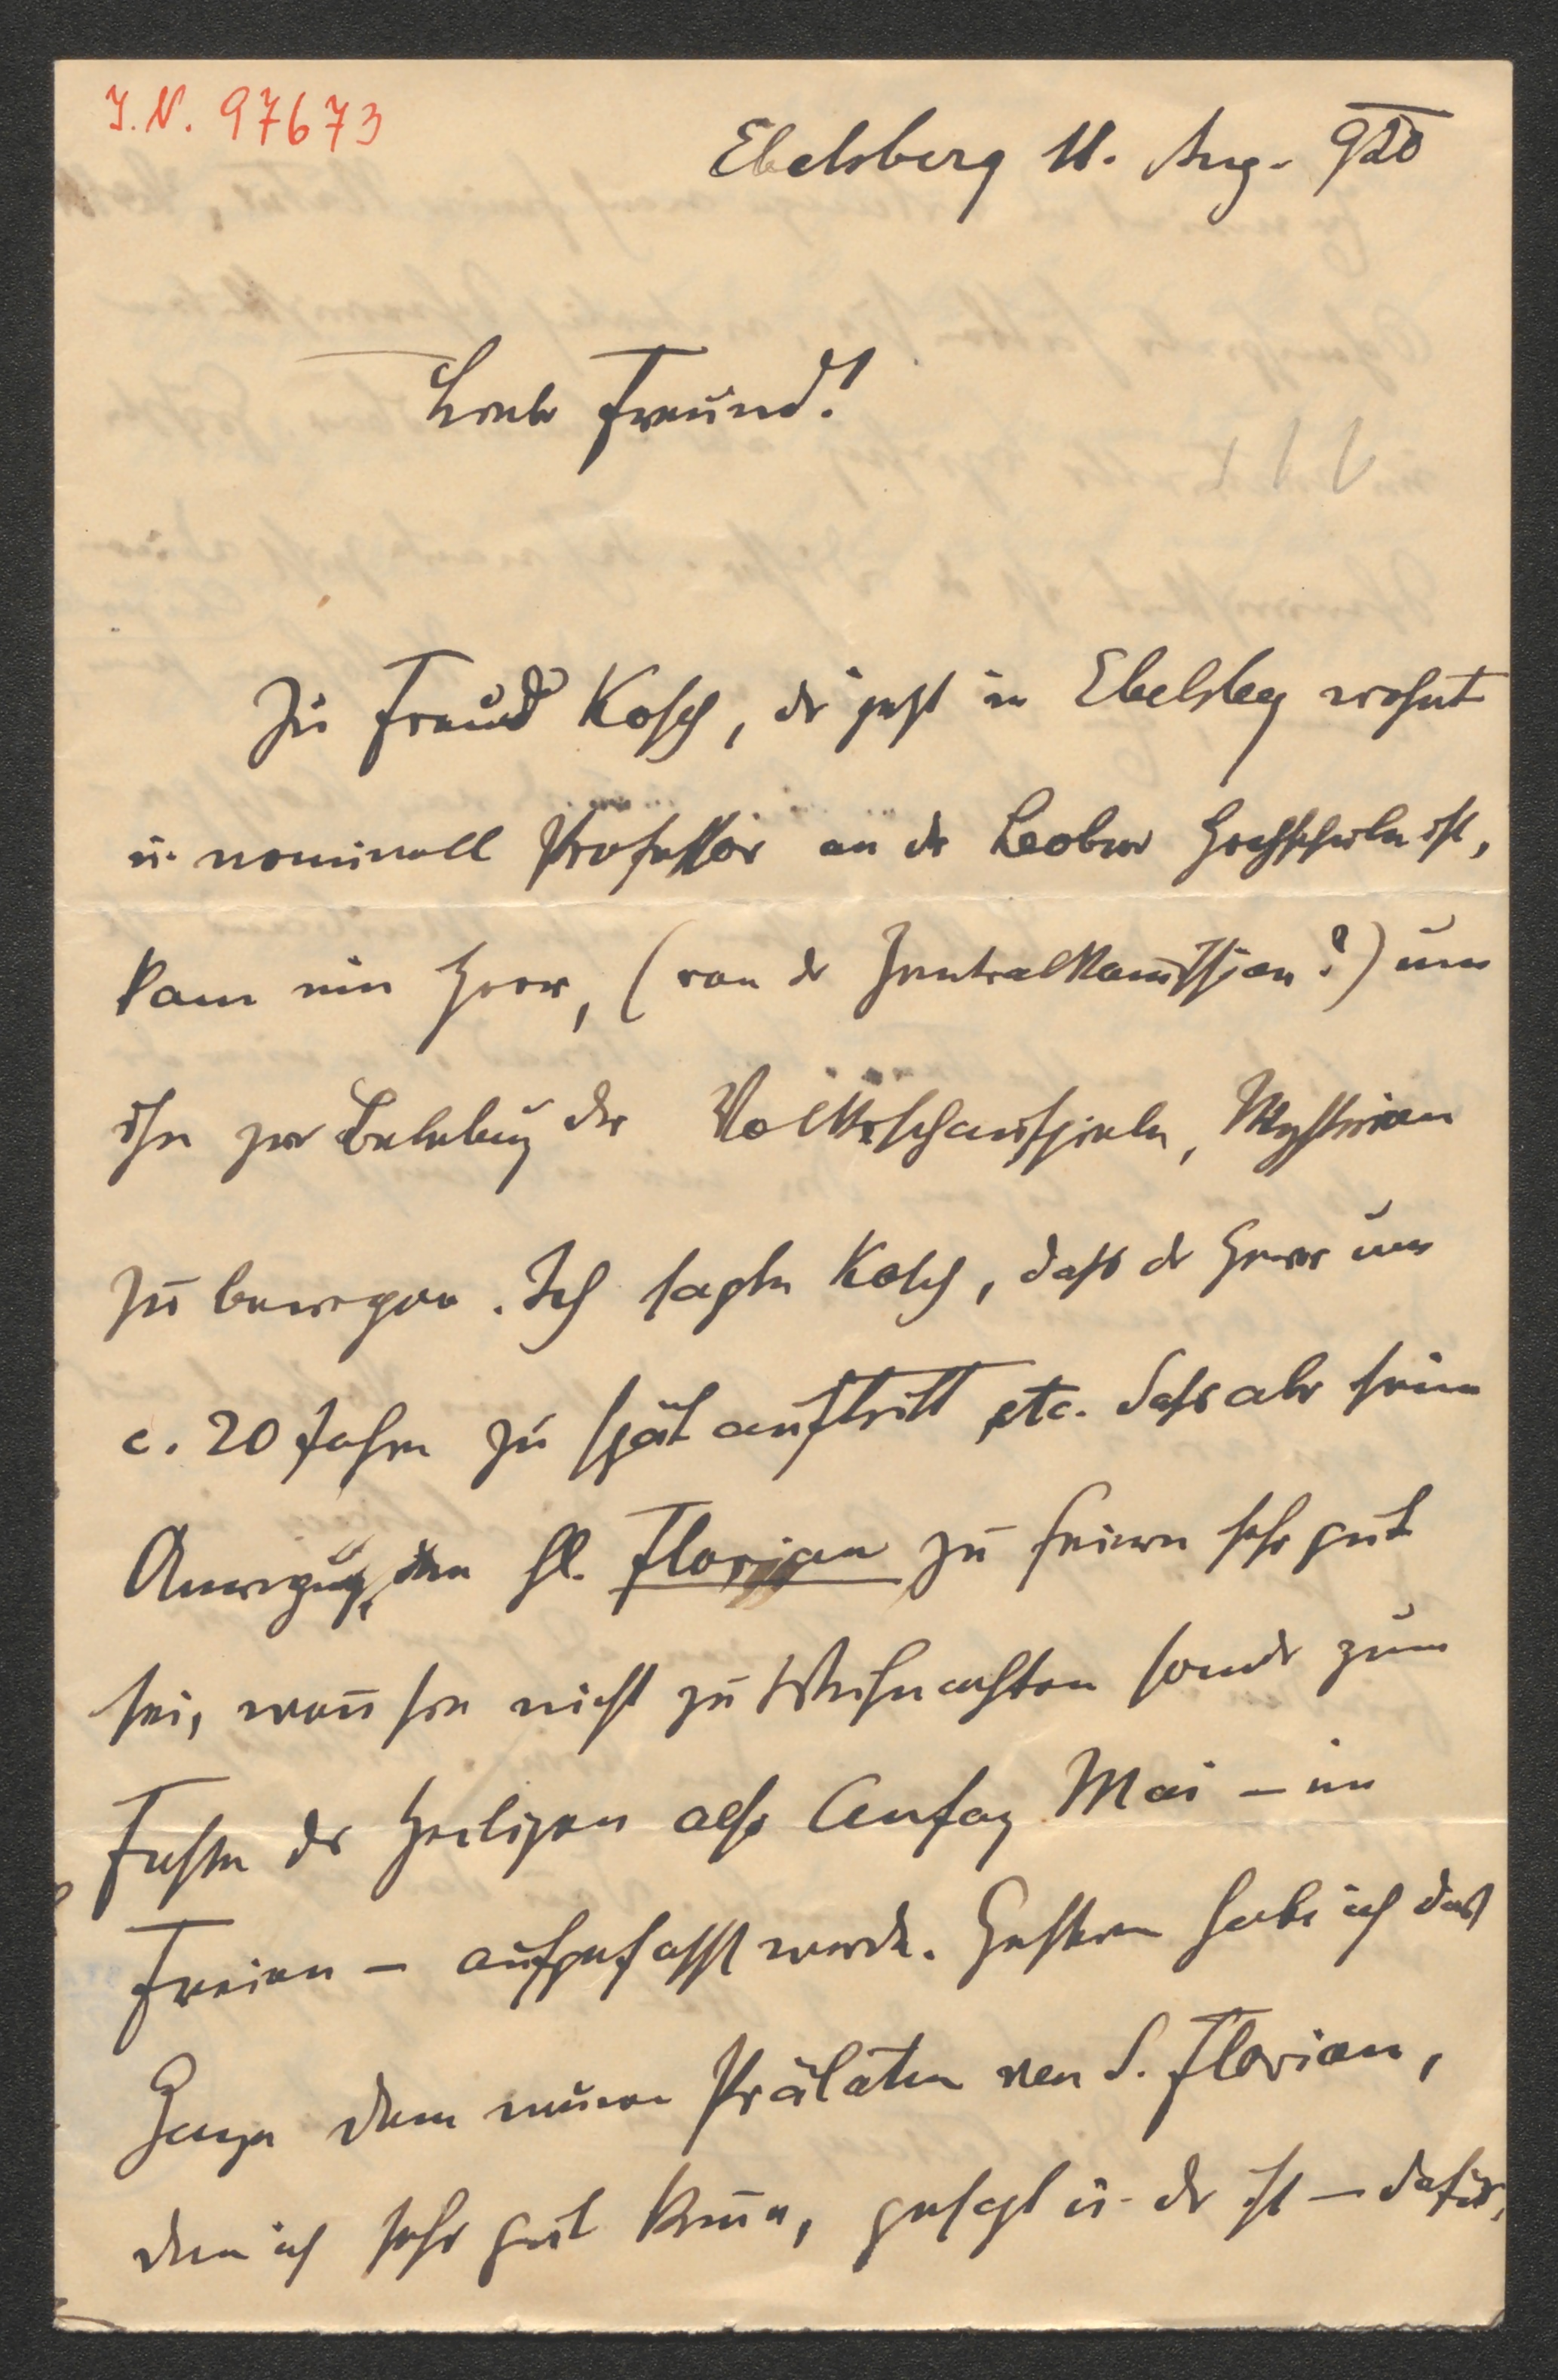 J. N. 97673
Ebelsberg 11. Aug. 920
Lieber Freund!
Zu Freund Kosch, der jetzt in Ebelsbeg wohnt
u. nominell Professor an der Leobner Hochschule ist,
kam ein Herr, (von der Zentralkommission?) um
ihn zur Belebung der Volksschauspiele, Mysterien
zu bewegen. Ich sagte Kosch, dass der Herr um
c. 20 Jahre zu spät auftritt etc. dass aber seine
Anregung, den hl. Florian zu feiern sehr gut
sei, wenn sie nicht zu Weihnachten sonder zum
Feste des Heiligen also Anfag Mai – im
Freien – aufgefasst werde. Gestern habe ich das
Ganze dem neuen Prälaten von S. Florian,
den ich sehr gut kenne, gesagt u. der ist – dafür,